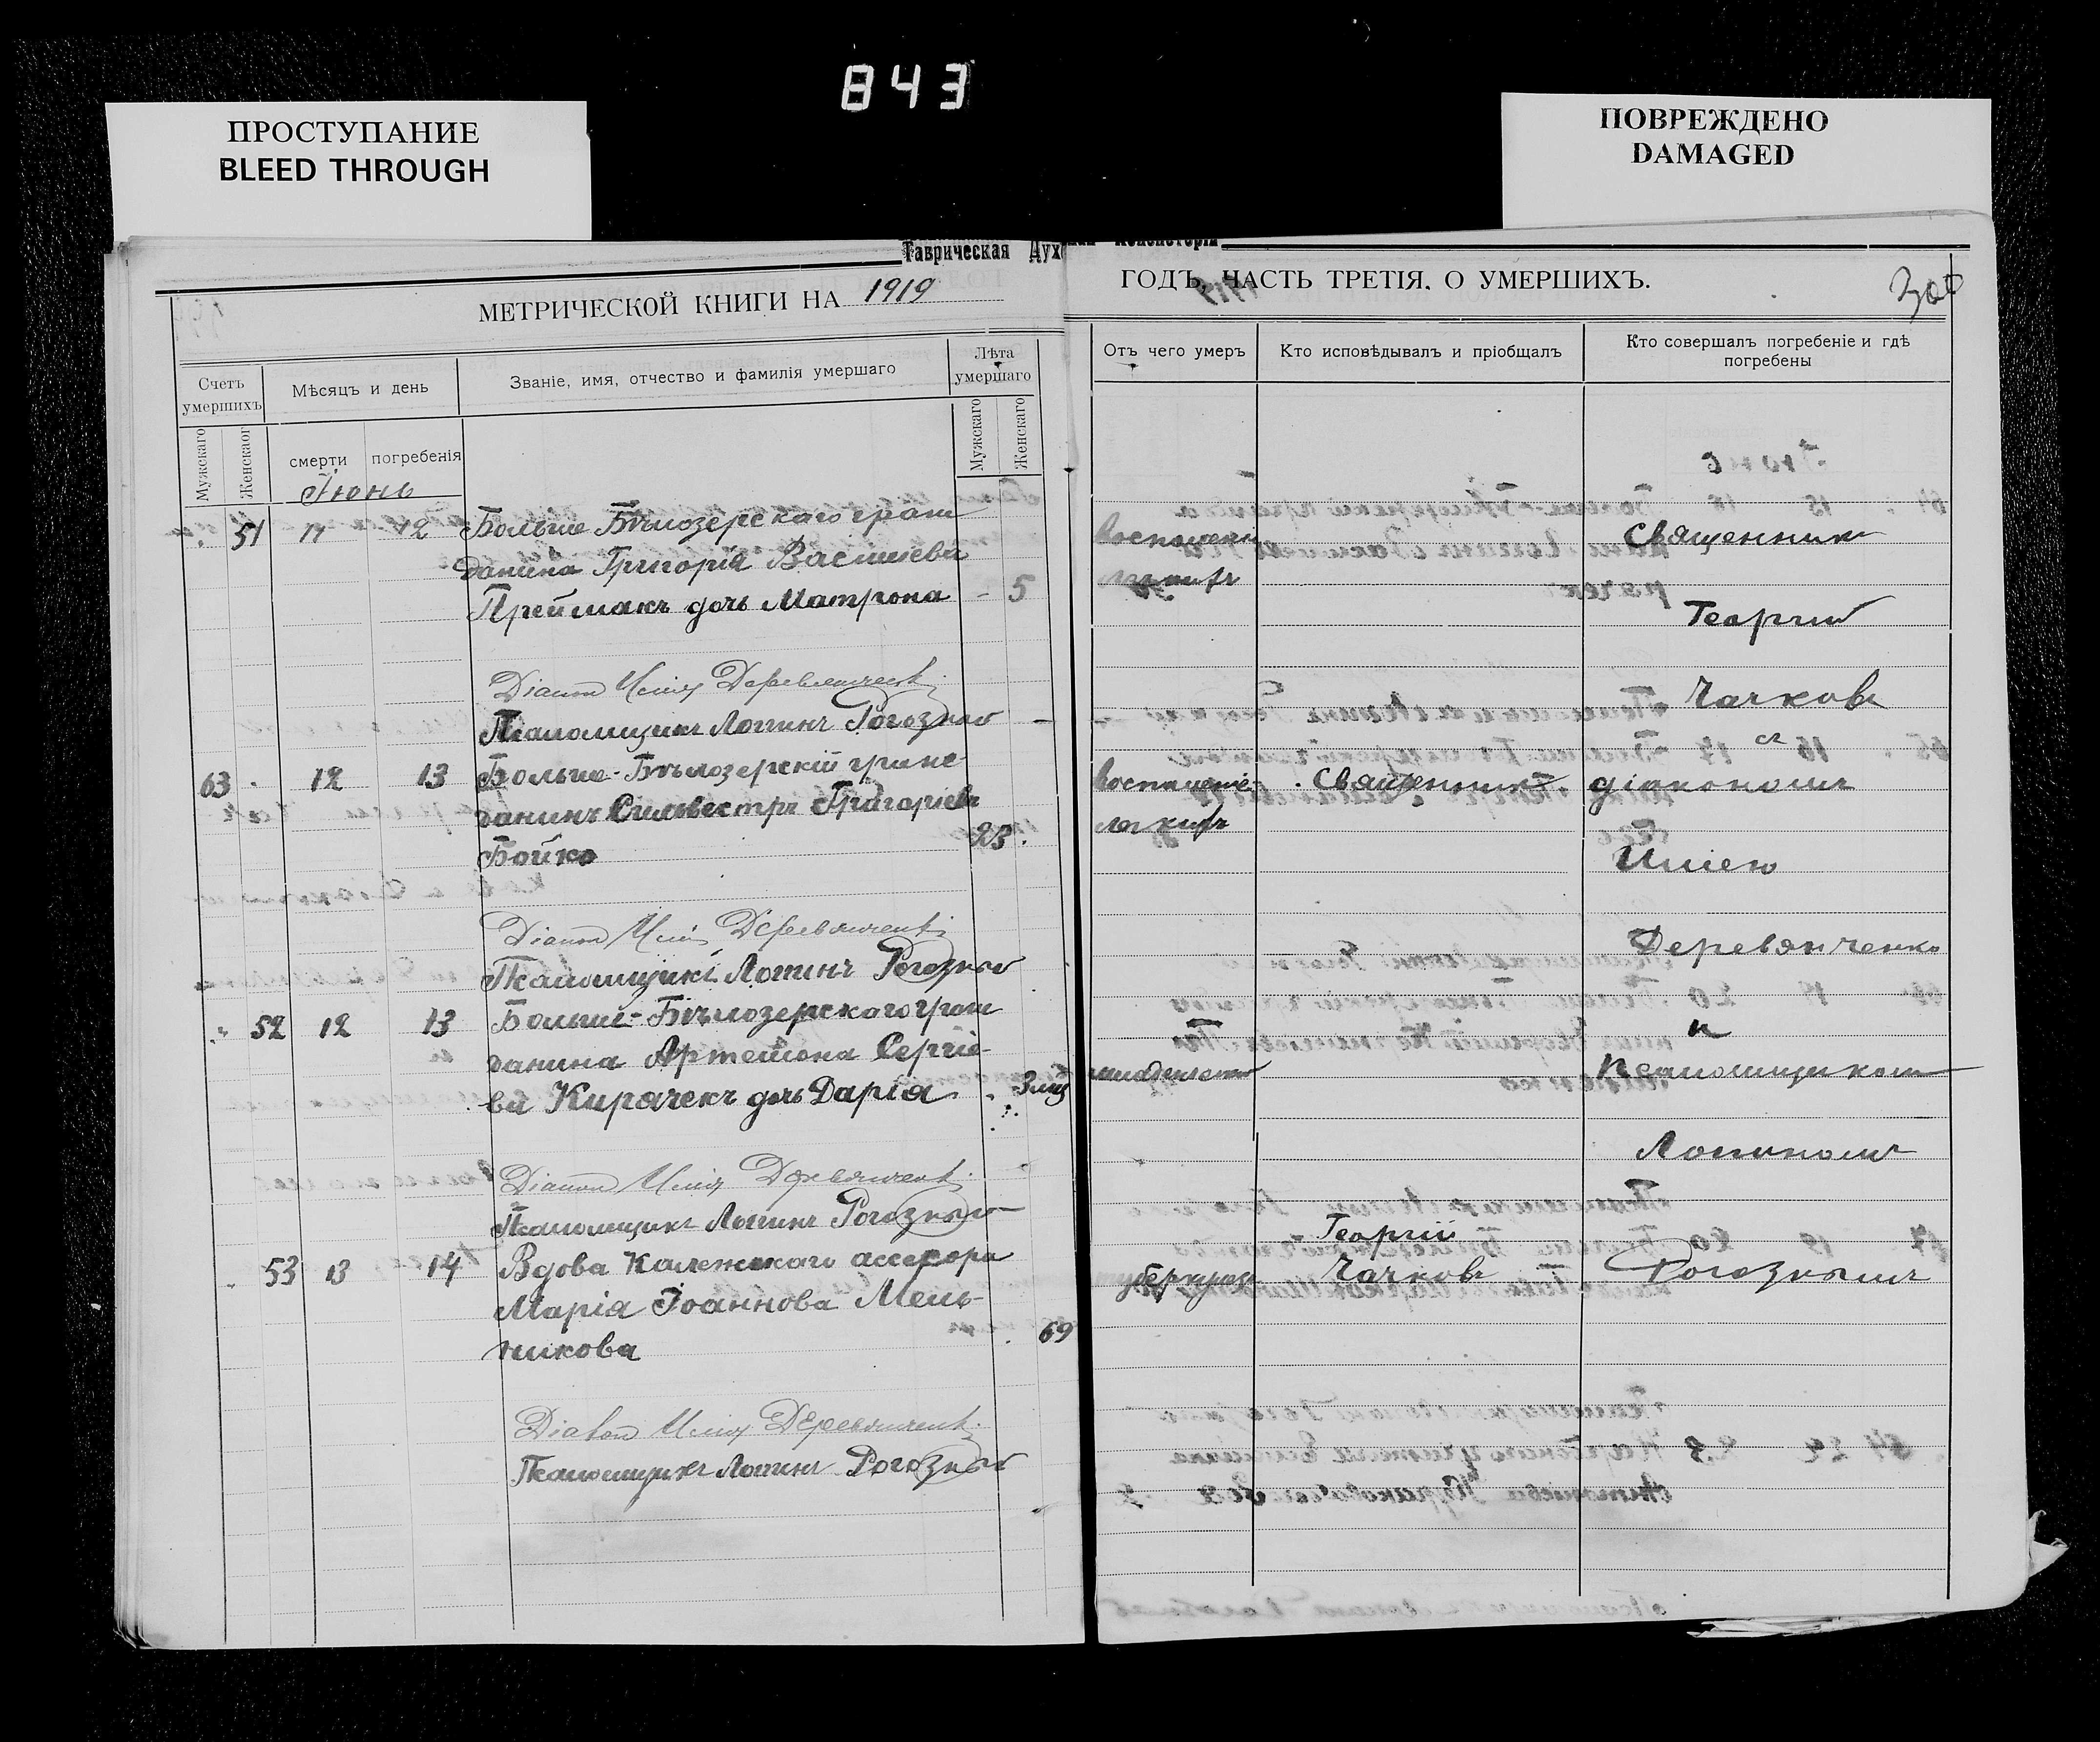 843
ПРОСТУПАНИЕ
BLEED THROUGH
ПОВРЕЖДЕНО
DAMAGED
Таврическая Дух
МЕТРИЧЕСКОЙ КНИГИ НА 1919
Счетъ умершихъ
Мѣсяцъ и день
Званіе, имя, отчество и фамилія умершаго
Лѣта умершаго
Мужскаго
Женскаог
смерти
погребенія
Мужскаго
Женскаго
Іюнь
51 11 12 Больше Бѣлозерскаго граж
данина Григорія Васильева
Преймакъ дочь Матрона - 5
Діаконъ Илія Деревянченко
Псаломщикъ Логинъ Рогозный
63 12 13 Больше-Бѣлозерскій граж
данинъ Сильвестръ Григоріевъ
Бойко 23
Діаконъ Илія Деревянченко
Псаломщикъ Логинъ Рогозный
52 12 13 Больше-Бѣлозерскаго граж
данина Артемона Сергіе-
ва Кирячекъ дочь Дарія 3 мѣс
Діаконъ Илія Деревянченко
Псаломщикъ Логинъ Рогозный
53 13 14 Вдова Колежскаго ассесора
Марія Іоаннова Мель-
никова 69
Діаконъ Илія Деревянченко
Псаломщикъ Логинъ Рогозный
ГОДЪ, ЧАСТЬ ТРЕТІЯ. О УМЕРШИХЪ.
Отъ чего умеръ
Кто исповѣдывалъ и пріобщалъ
Кто совершалъ погребеніе и гдѣ погребены
Священникъ
Георгій
Чачковъ
съ
Воспаленіе Священникъ діакономъ
легкихъ
Иліею
Деревянченко
и
младенчество Псаломщикомъ
Логиномъ
Георгій
туберкулезъ Чачковъ Рогознымъ